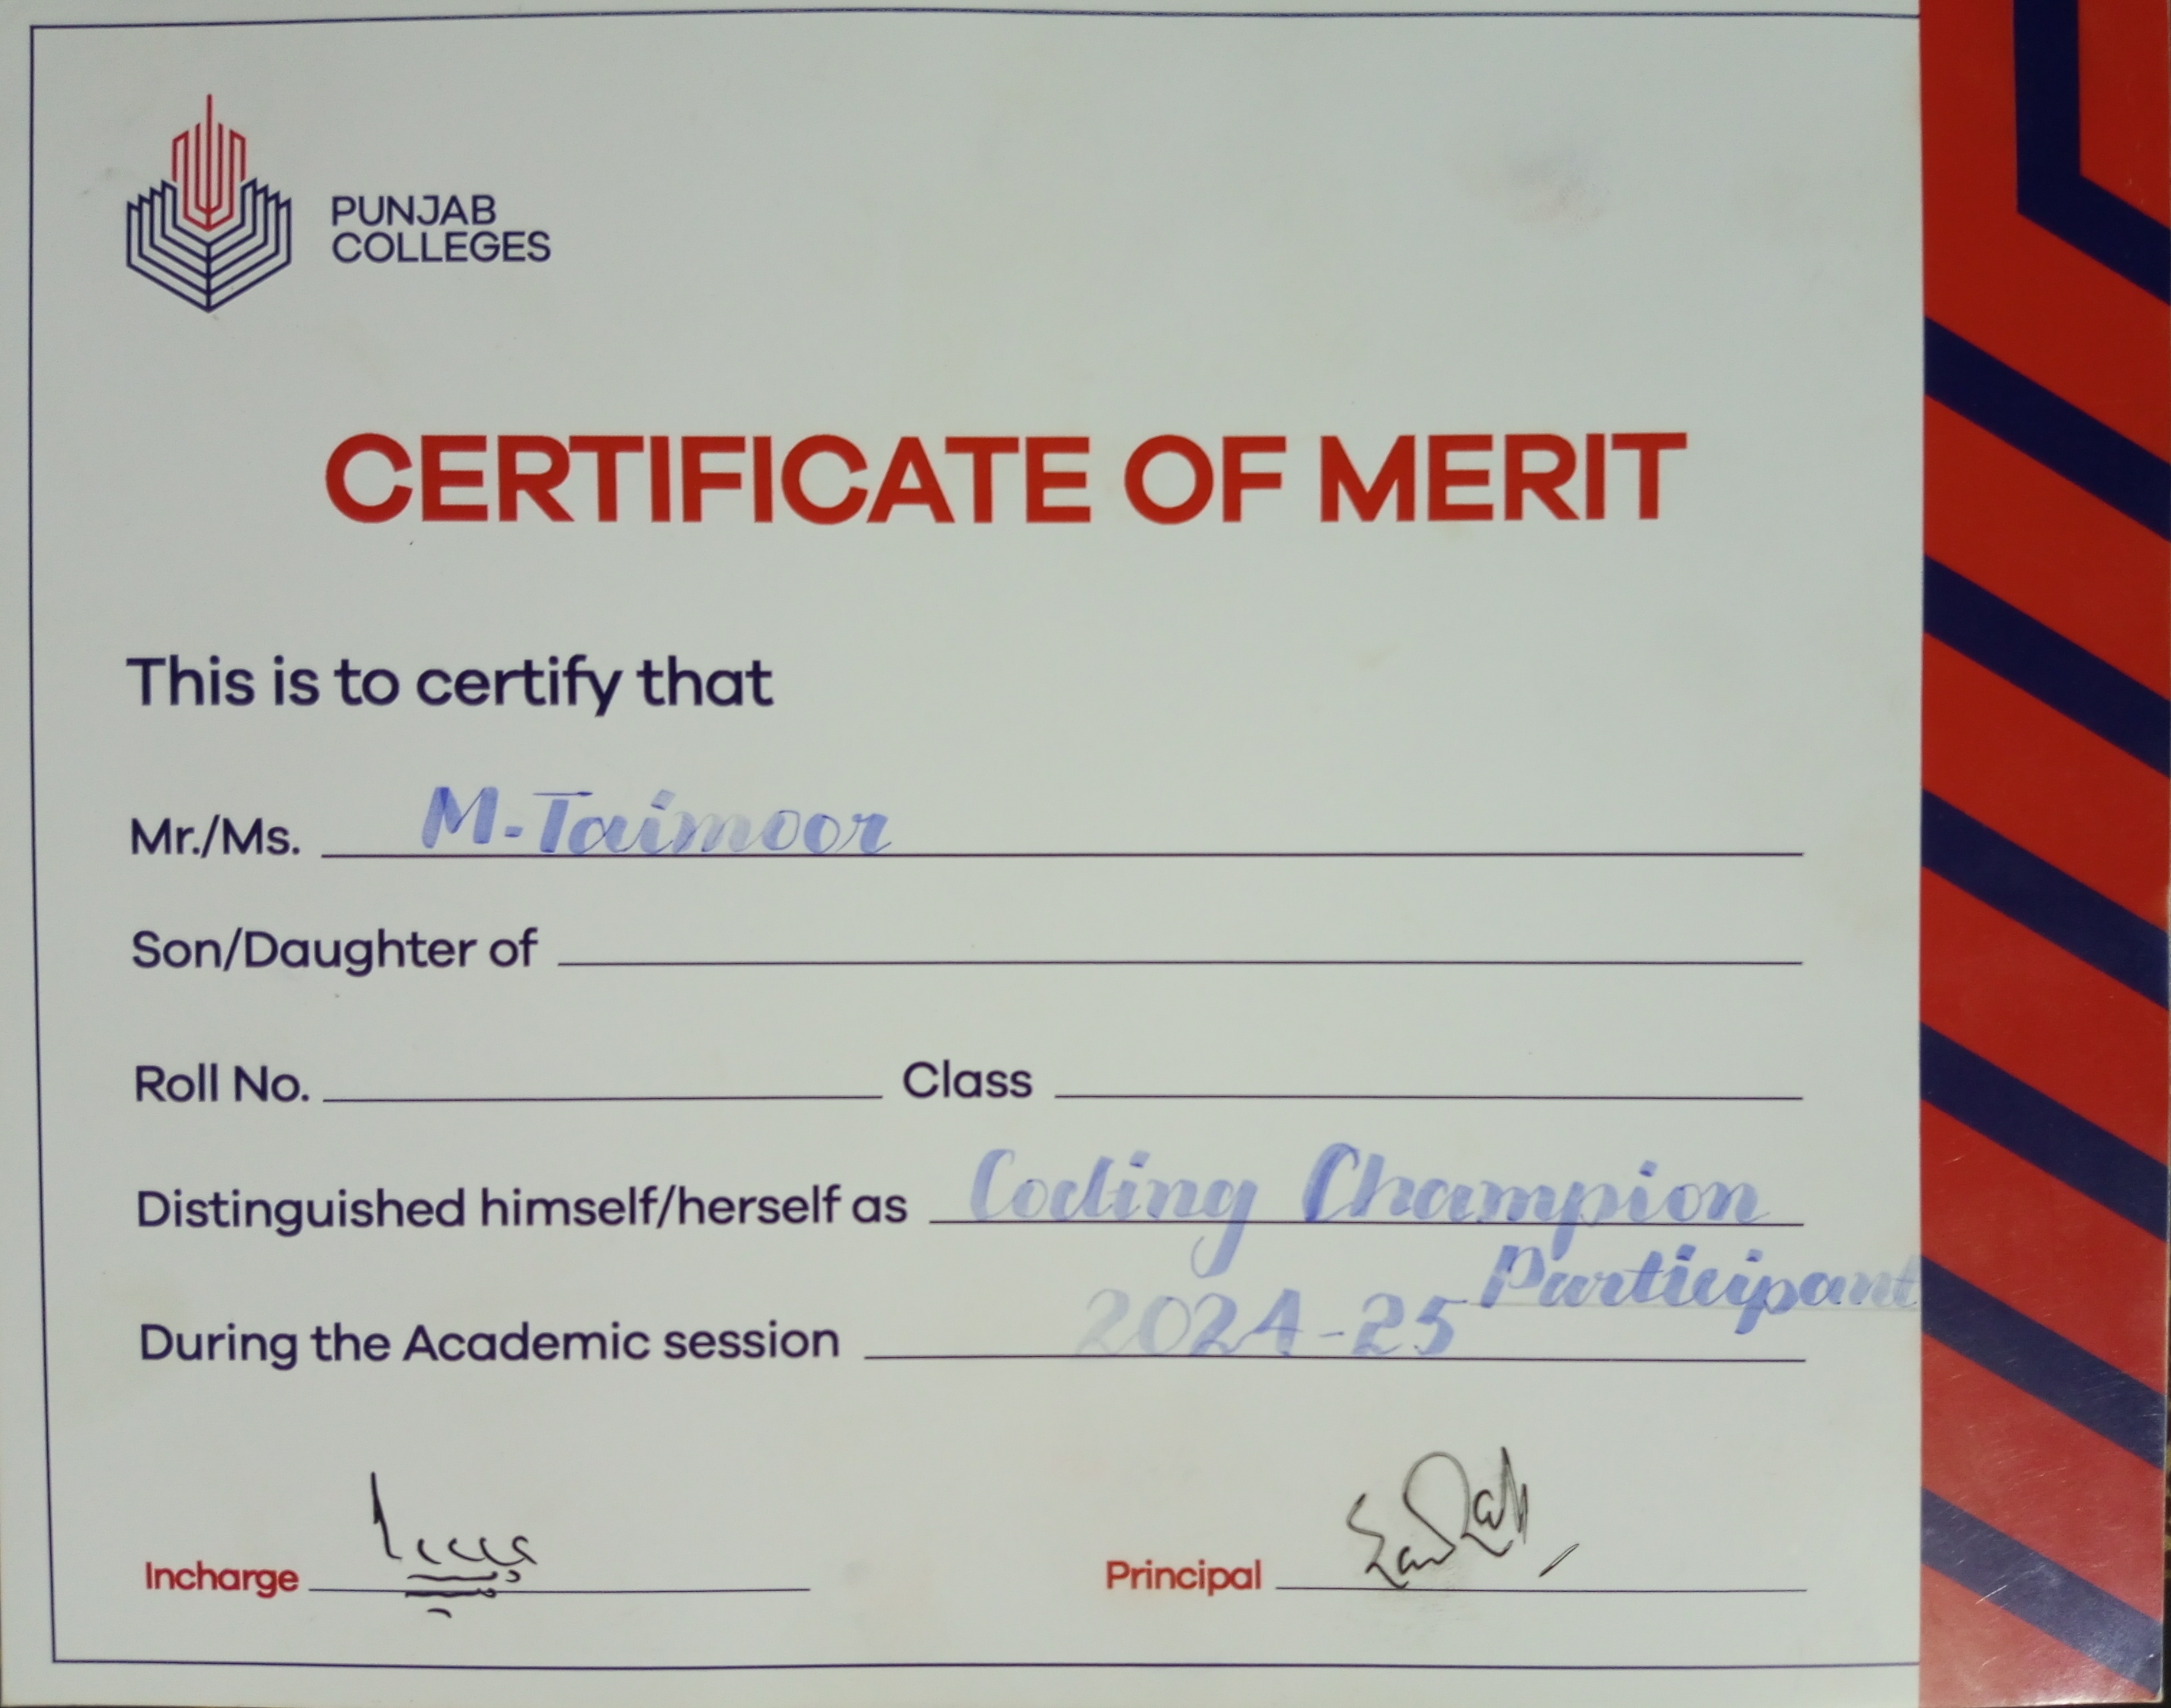 PUNJAB
COLLEGES
CERTIFICATE OF MERIT
This is to certify that
Mr./Ms. M. Taimoor
Son/Daughter of
Roll No. Class
Distinguished himself/herself as Coding Champion
Participant
During the Academic session 2024-25
Incharge
Principal